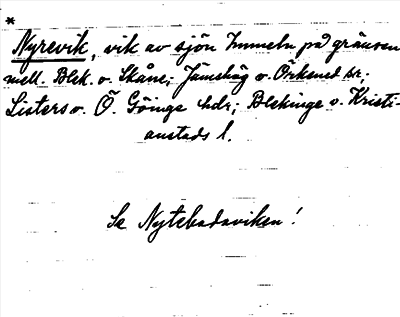 *
Nyrevik, vik av sjön Immeln på gränsen
mell. Blek. o. Skåne; Jämshög o. Örkened sr;
Listers o. Ö. Göinge hdr; Blekinge o. Kristi-
anstads l.
Se Nytebodaviken!